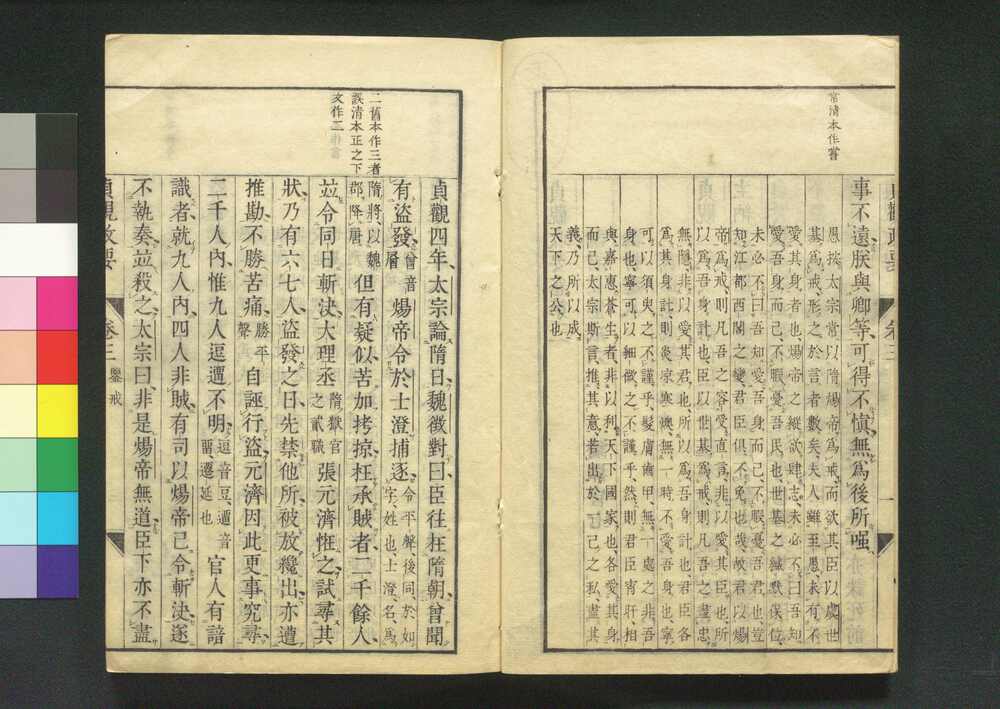 常清本作嘗
事不遠、朕與卿等、可得不愼、無爲後所嗤、
愚按太宗常以隋煬帝爲戒、而欲其臣以虞世
基爲戒、形之於言者數矣、夫人雖至愚、未有不
愛其身者也、煬帝之縱欲肆志、未必不曰吾知
愛吾身而已、不暇憂吾民也、世基之緘默保位、
未必不曰吾知愛吾身而已、不暇憂吾君也、豈
知江都西閣之變、君臣俱不免也哉、故君以煬
帝爲戒、則凡吾之容愛直言、非以愛其臣也、所
以爲吾身計也、臣以世基爲戒、則凡吾之盡忠
無隱、非以愛其君也、所以爲吾身計也、君臣各
爲其身計、則炎寒燠無一時不欲吾身也寧
可以須臾之不謹乎、髮膚齒甲無一處之非吾
身也、寧可以細微之不謹乎、然則君臣宵旰、相
與嘉惠蒼生者、非以利天下國家也、各愛其身
而已、太宗斯言、推其意、若出於一己之私、盡其
義、乃所以成
天下之公也
二舊本作三者
誤清本正之下
文作二
貞觀四年、太宗論隋日、魏徵對曰、臣往在隋朝、曾聞
有盜發、曾音層煬帝令於士澄捕逐、令平聲、後同、於如字、姓也、士澄、名、爲
隋將、以魏郡、降唐但有疑似、苦加拷掠、枉承賊者二千餘人、
竝令同日斬決、大理丞隋獄官之貳職張元濟恠之、試尋其
狀、乃有六七人、盜發之日、先禁他所、被放纔出、亦遭
推勘、不勝苦痛、勝平聲自誣行盜、元濟因此更事究尋、
二千人內、惟九人逗遛不明、逗音豆、遛音留、遷延也官人有諳
識者、就九人內、四人非賊、有司以煬帝已令斬決、遂
不執奏、竝殺之、太宗曰、非是煬帝無道、臣下亦不盡
貞觀政要
卷三
鑒戒